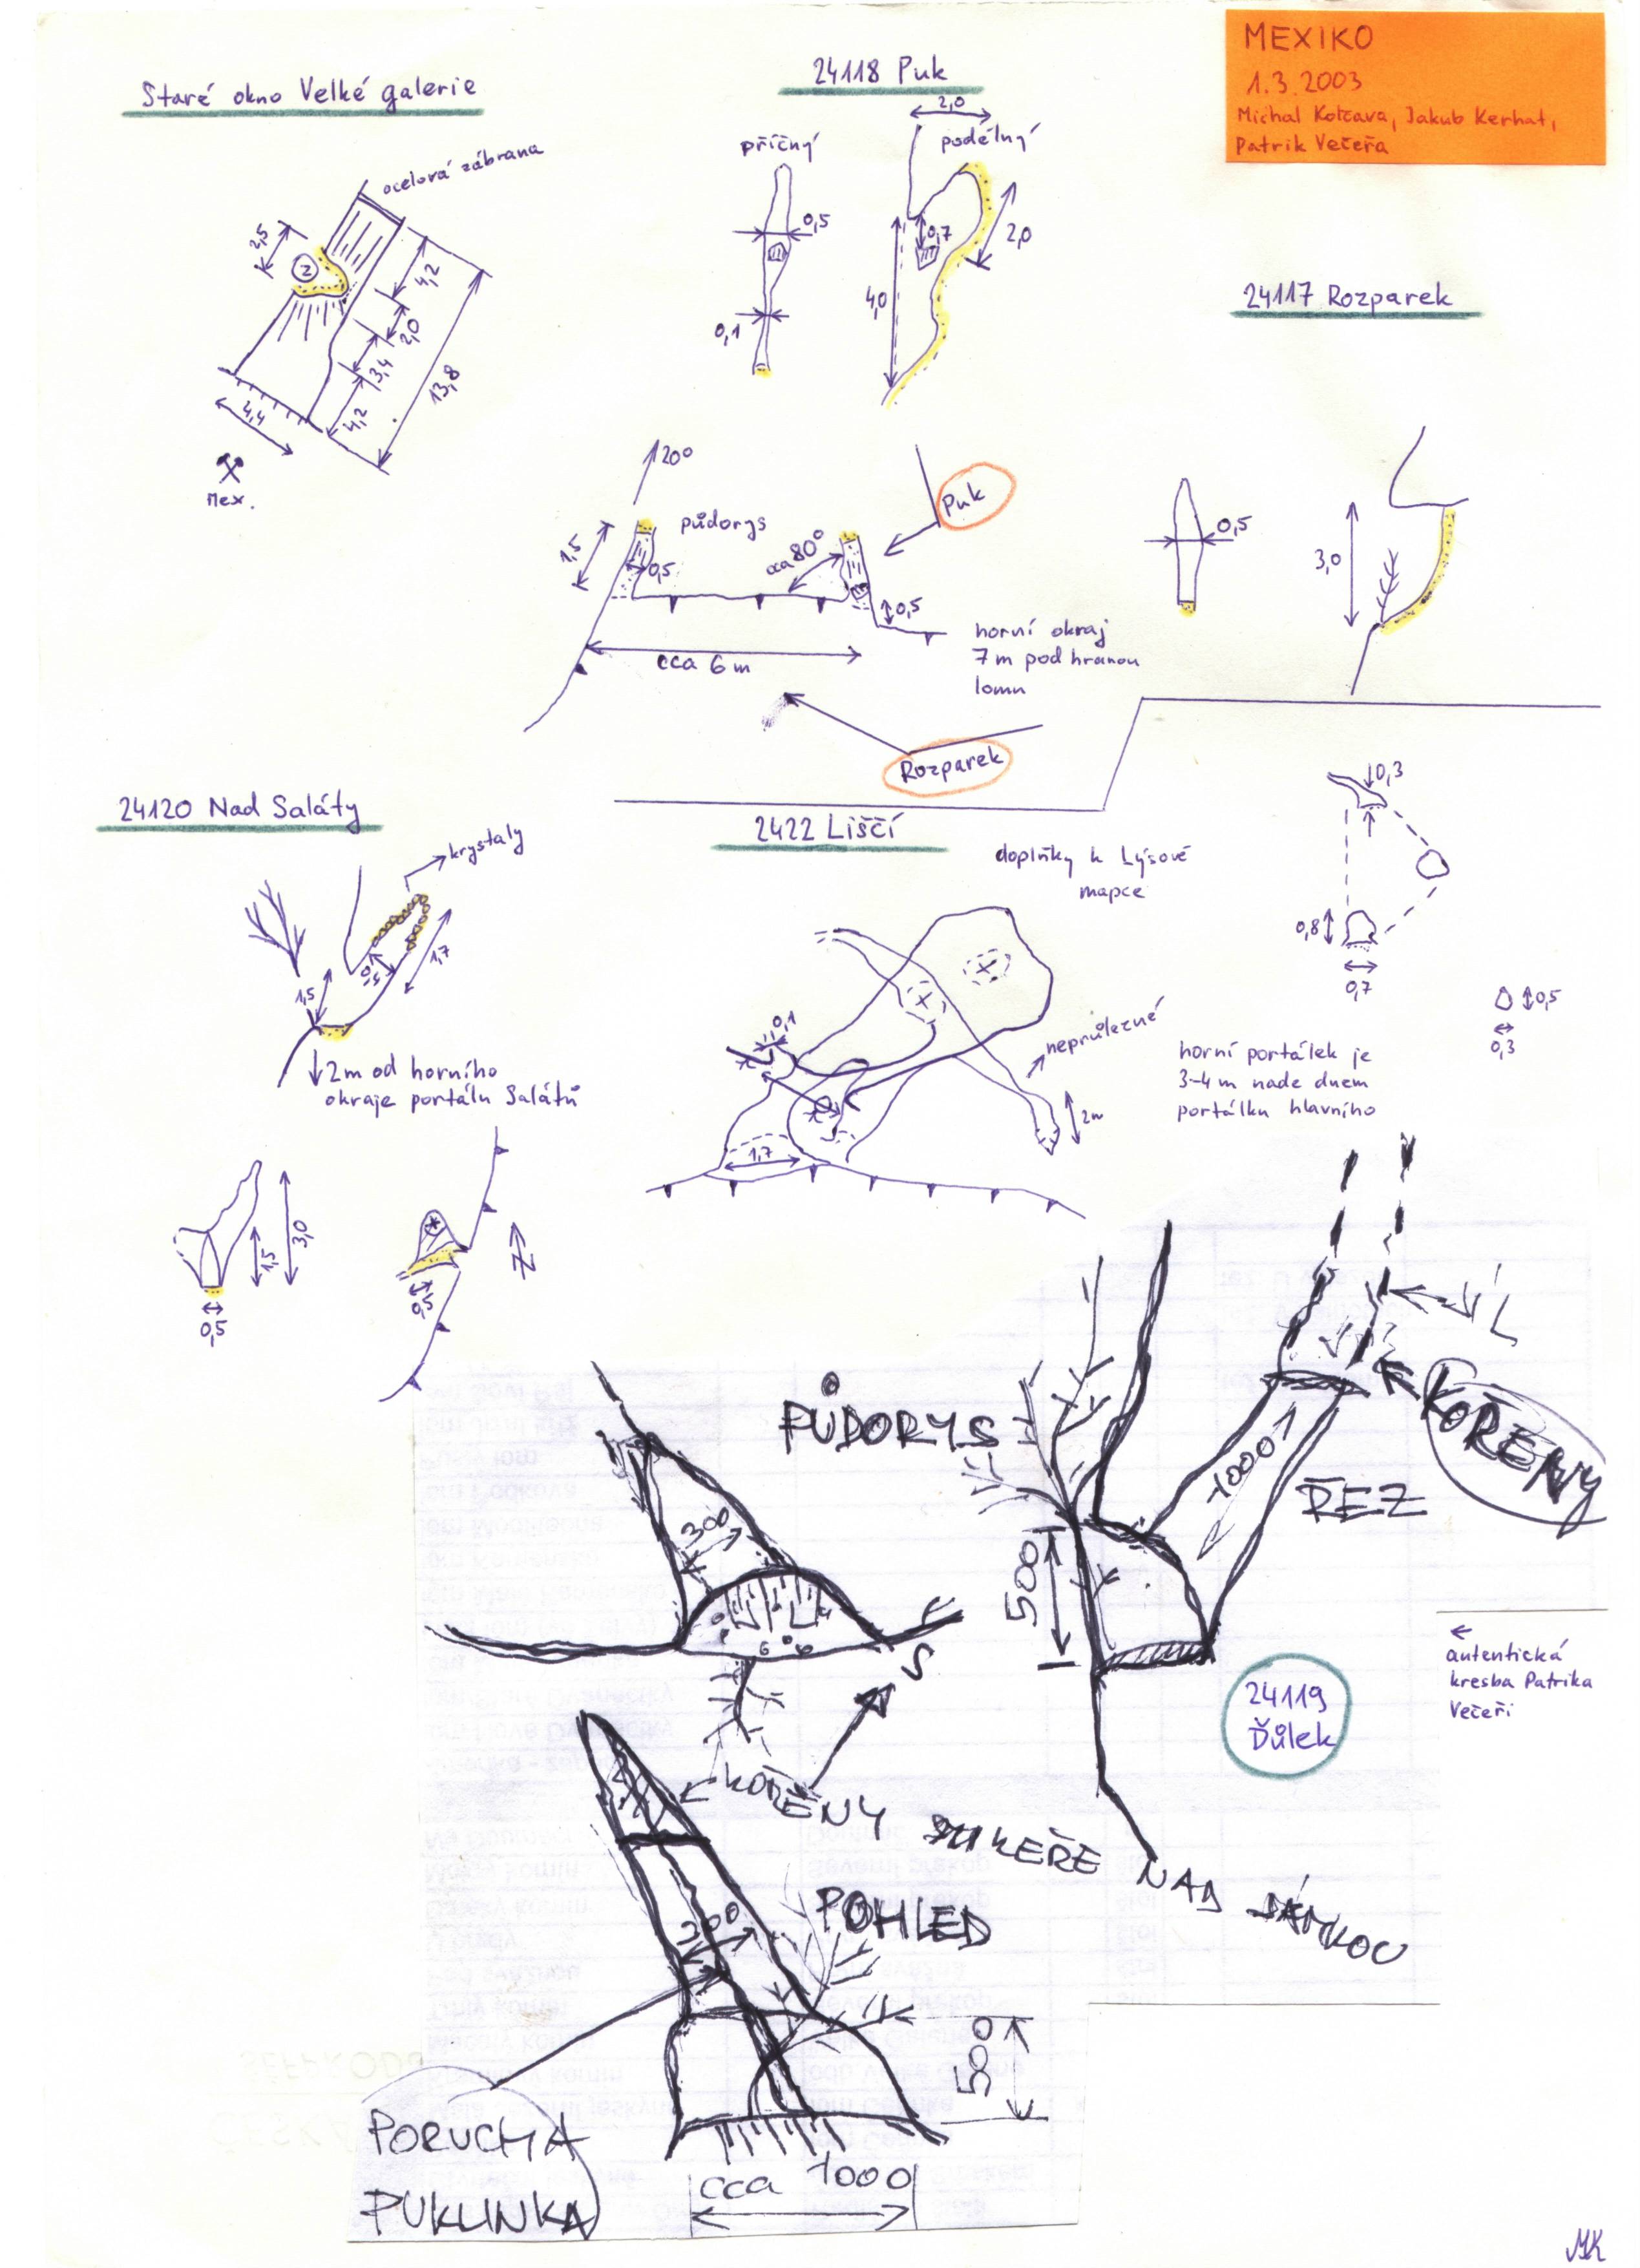 MEXIKO
1.3.2003
Michal Kolčava, Jakub Kerhat,
Patrik Večeřa
Staré okno Velké galerie
ocelová zábrana
2,5
2
4,2
2,0
3,4
4,2
13,8
4,4
Mex.
24118 Puk
příčný
podélný
2,0
0,5
0,7
2,0
4,0
0,1
24117 Rozparek
0,5
3,0
20°
půdorys
1,5
0,5
cca 80°
Puk
0,5
cca 6 m
horní okraj
7 m pod hranou
lomu
Rozparek
24120 Nad Saláty
krystaly
1,7
0,5
1,5
2m od horního
okraje portálu Salátů
3,0
1,5
0,5
0,5
N
2422 Liščí
doplňky k Lýsové
mapce
0,1
neprůlezné
2m
1,7
0,3
0,8
0,7
0,5
0,3
horní portálek je
3-4 m nade dnem
portálku hlavního
PŮDORYS
300
S
KOŘENY
ŘEZ
1000
500
KOŘENY
NAD
autentická
kresba Patrika
Večeři
24119
Ďůlek
POHLED
200
500
cca 1000
PORUCHA
PUKLINKA
MK